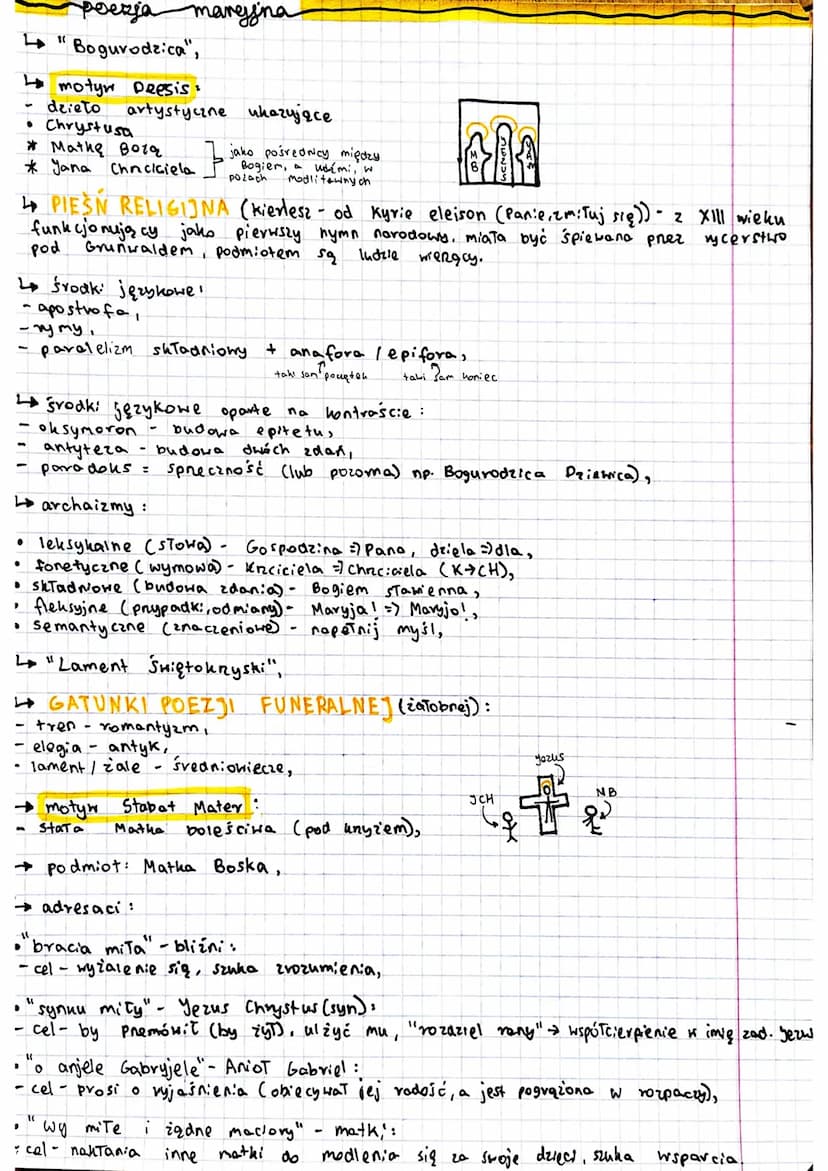 poezja maryjna
↳ "Bogurodzica",
↳ motyw Deesis:
- dzieło artystyczne ukazujące
• Chrystusa
* Matkę Bożą
* Jana Chrzciciela
jako pośrednicy między
Bogiem, a ludźmi, w
pozach modlitewnych
MB JEZUS JAN
↳ PIEŚŃ RELIGIJNA (kierlesz - od Kyrie eleison (Panie, zmiłuj się)) - z XIII wieku
funkcjonujący jako pierwszy hymn narodowy. miała być śpiewana przez rycerstwo
pod Grunwaldem, podmiotem są ludzie wierzący.
↳ środki językowe:
- apostrofa,
- rymy,
- paralelizm składniowy + anafora / epifora,
taki sam początek taki sam koniec
↳ środki językowe oparte na kontraście:
- oksymoron - budowa epitetu,
- antyteza - budowa dwóch zdań,
- paradoks = sprzeczność (lub pozorna) np. Bogurodzica Dziewica),
↳ archaizmy:
• leksykalne (słowa) - Gospodzina => Pana, dziela => dla,
• fonetyczne (wymowa) - Krzciciela => Chrzciciela (K→CH),
• składniowe (budowa zdania) - Bogiem sławienna,
• fleksyjne (przypadki, odmiany) - Maryja! => Maryjo!,
• semantyczne (znaczeniowe) - napełnij myśl,
↳ "Lament Świętokrzyski",
↳ GATUNKI POEZJI FUNERALNEJ (żałobnej):
- tren - romantyzm,
- elegia - antyk,
- lament / żale - średniowiecze,
→ motyw Stabat Mater:
- stała Matka boleściwa (pod krzyżem),
Jezus
JCH
MB
→ podmiot: Matka Boska,
→ adresaci:
• "bracia miła" - bliźni:
- cel - wyżalenie się, szuka zrozumienia,
• "synku miły" - Jezus Chrystus (syn):
- cel - by przemówił (by żył), ulżyć mu, "rozdziel rany" → współcierpienie w imię zad. Jezus
• "o anjele Gabryjele" - Anioł Gabriel:
- cel - prosi o wyjaśnienia (obiecywał jej radość, a jest pogrążona w rozpaczy),
• "wy miłe i żądne maciory" - matki:
- cel - nakłania inne matki do modlenia się za swoje dzieci, szuka wsparcia